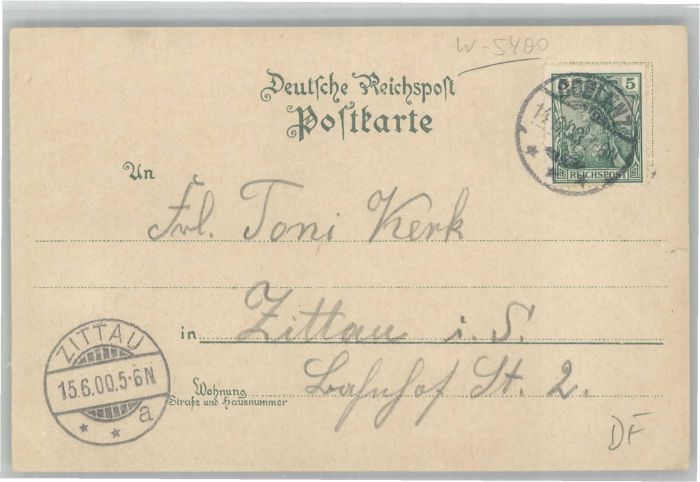 W-5400
Deutsche Reichspost
Postkarte
5 5
REICHSPOST
COBLENZ
An
Frl. Toni Kerk
in Zittau i. S.
Wohnung
Straße und Hausnummer
Bahnhof St. 2.
ZITTAU
15.6.00.5-6N
* * a
DF